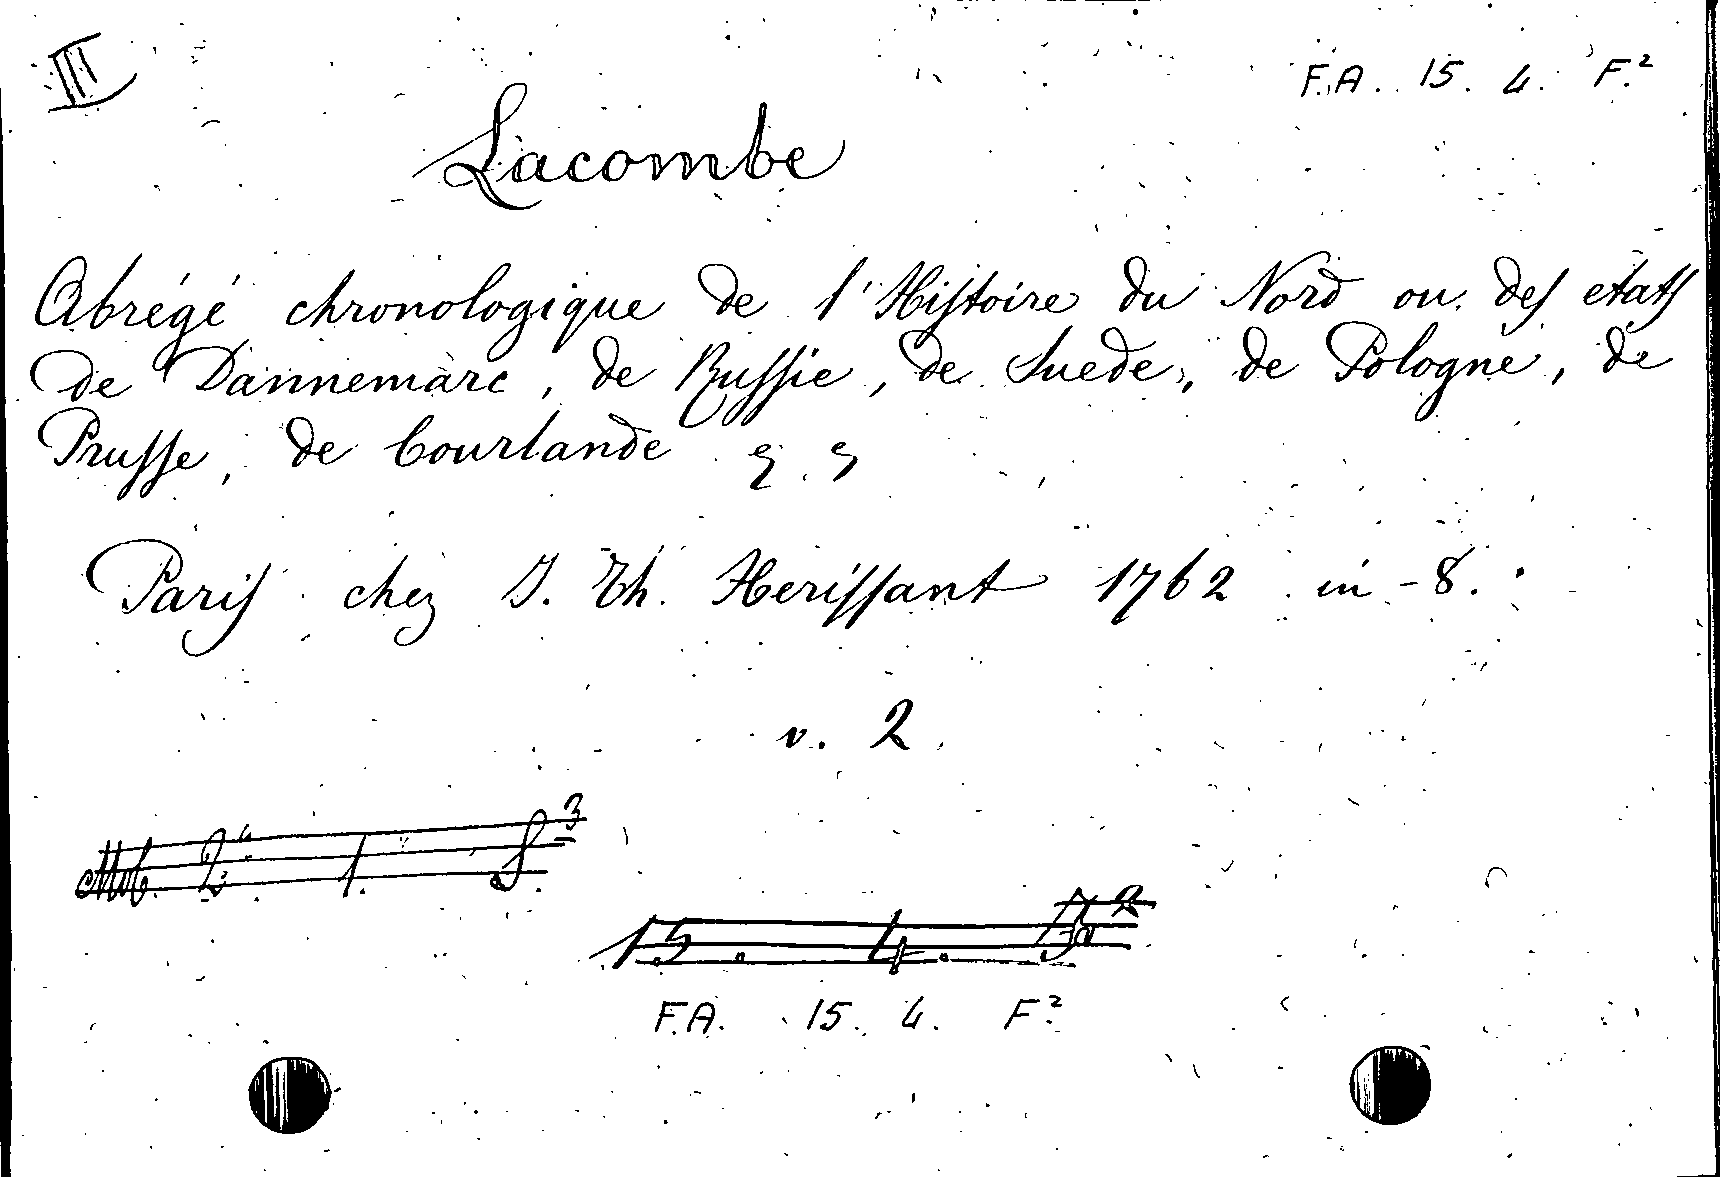 III
F.A. 15. 4. F.²
Lacombe
Abrégé chronologique de l'Histoire du Nord ou des états
de Dannemarc, de Russie, de Suede, de Pologne, de
Prusse, de Courlande
Paris chez J. Th. Herissant 1762 in-8.
v. 2
Mb. 2. 1. S.³
15. 4. F²
F.A. 15. 4. F.²